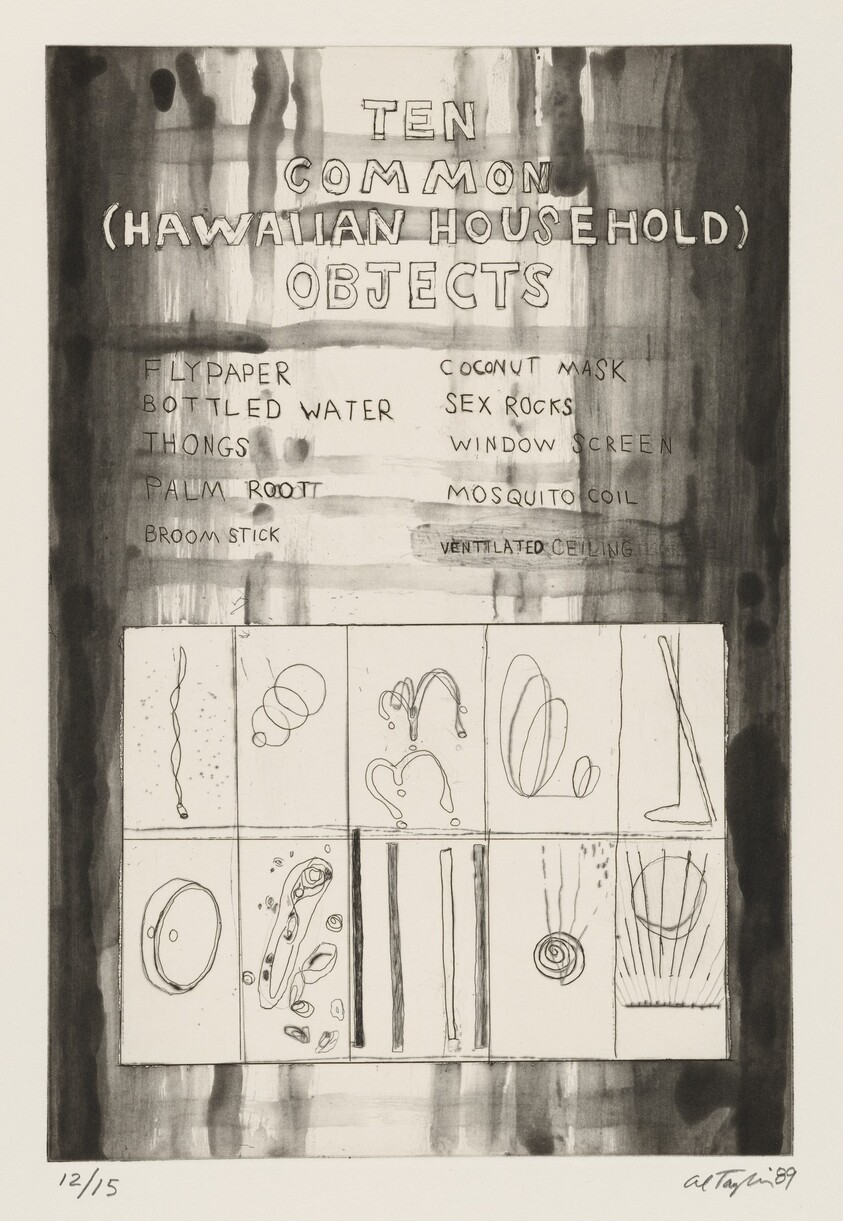 TEN
COMMON
(HAWAIIAN HOUSEHOLD)
OBJECTS
FLYPAPER
BOTTLED WATER
THONGS
PALM ROOTT
BROOM STICK
COCONUT MASK
SEX ROCKS
WINDOW SCREEN
MOSQUITO COIL
VENTILATED CEILING
12/15
Al Taylor 89